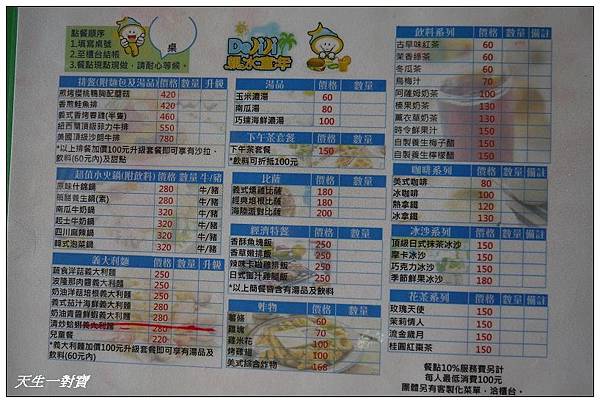 點餐順序
1.填寫桌號
2.至櫃台結帳
3.餐點現點現做，請耐心等候。
桌
排餐(附麵包及湯品) 價格 數量 升級
煎烤櫻桃鴨胸配蘑菇 420
香煎鮭魚排 420
義式香烤春雞(半隻) 460
紐西蘭頂級菲力牛排 550
美國頂級沙朗牛排 780
*以上排餐加價100元升級套餐即可享有沙拉、
飲料(60元內)及甜點
超值小火鍋(附飲料) 價格 數量 牛/豬
原味什錦鍋 280 牛/豬
無膩養生鍋(素) 280
南瓜牛奶鍋 320 牛/豬
起士牛奶鍋 320 牛/豬
四川麻辣鍋 320 牛/豬
韓式泡菜鍋 320 牛/豬
義大利麵 價格 數量 升級
蔬食洋菇義大利麵 250
波隆那肉醬義大利麵 250
奶油洋菇培根義大利麵 250
義式茄汁海鮮義大利麵 280
奶油青醬鮮蝦義大利麵 280
清炒蛤蜊義大利麵 280
兒童餐 220
*義大利麵加價100元升級套餐即可享有湯品及
飲料(60元內)
湯品 價格 數量
玉米濃湯 60
南瓜濃湯 80
巧達海鮮濃湯 100
下午茶套餐 價格 數量
下午茶套餐 150
*飲料可折抵100元
比薩 價格 數量
義式燻雞比薩 180
經典培根比薩 180
海陸雙對比薩 200
經濟特餐 價格 數量
香酥魚塊飯 250
香草雞排飯 250
辣味卡啦雞排飯 250
日式蜜汁雞腿飯 250
*以上簡餐皆含有湯品及飲料
炸物 價格 數量
薯條
雞塊
雞米花
烤雞翅 100
美式綜合炸物 168
飲料系列 價格 數量 備註
古早味紅茶 60
茉香綠茶 60
冬瓜茶 60
烏梅汁 70
阿薩姆奶茶 100
榛果奶茶 130
薰衣草奶茶 130
時令鮮果汁 150
自製養生梅子醋 150
自製養生檸檬醋 150
咖啡系列 價格 數量 備註
美式咖啡 80
冰咖啡 100
熱拿鐵 120
冰拿鐵 130
冰沙系列 價格 數量 備註
頂級日式抹茶冰沙 150
摩卡冰沙 150
巧克力冰沙 150
季節鮮果冰沙 180
花茶系列 價格 數量 備註
玫瑰天使 150
茉莉情人 150
流金歲月 150
桂圓紅棗茶 150
餐點10%服務費另計
每人最低消費100元
團體另有客製化菜單，洽櫃台。
天生一對寶